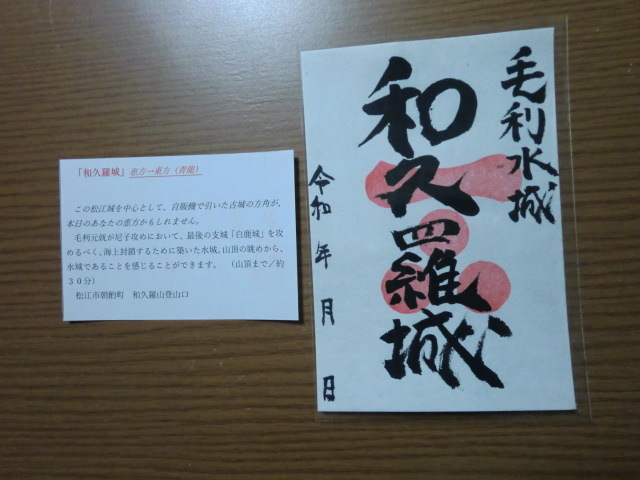 「和久羅城」恵方→東方（青龍）
この松江城を中心として、自販機で引いた古城の方角が、
本日のあなたの恵方かもしれません。
毛利元就が尼子攻めにおいて、最後の支城「白鹿城」を攻
めるべく、海上封鎖するために築いた水城。山頂の眺めから、
水城であることを感じることができます。（山頂まで／約
３０分）
松江市朝酌町　和久羅山登山口
毛利水城
和久羅城
令和 年 月 日